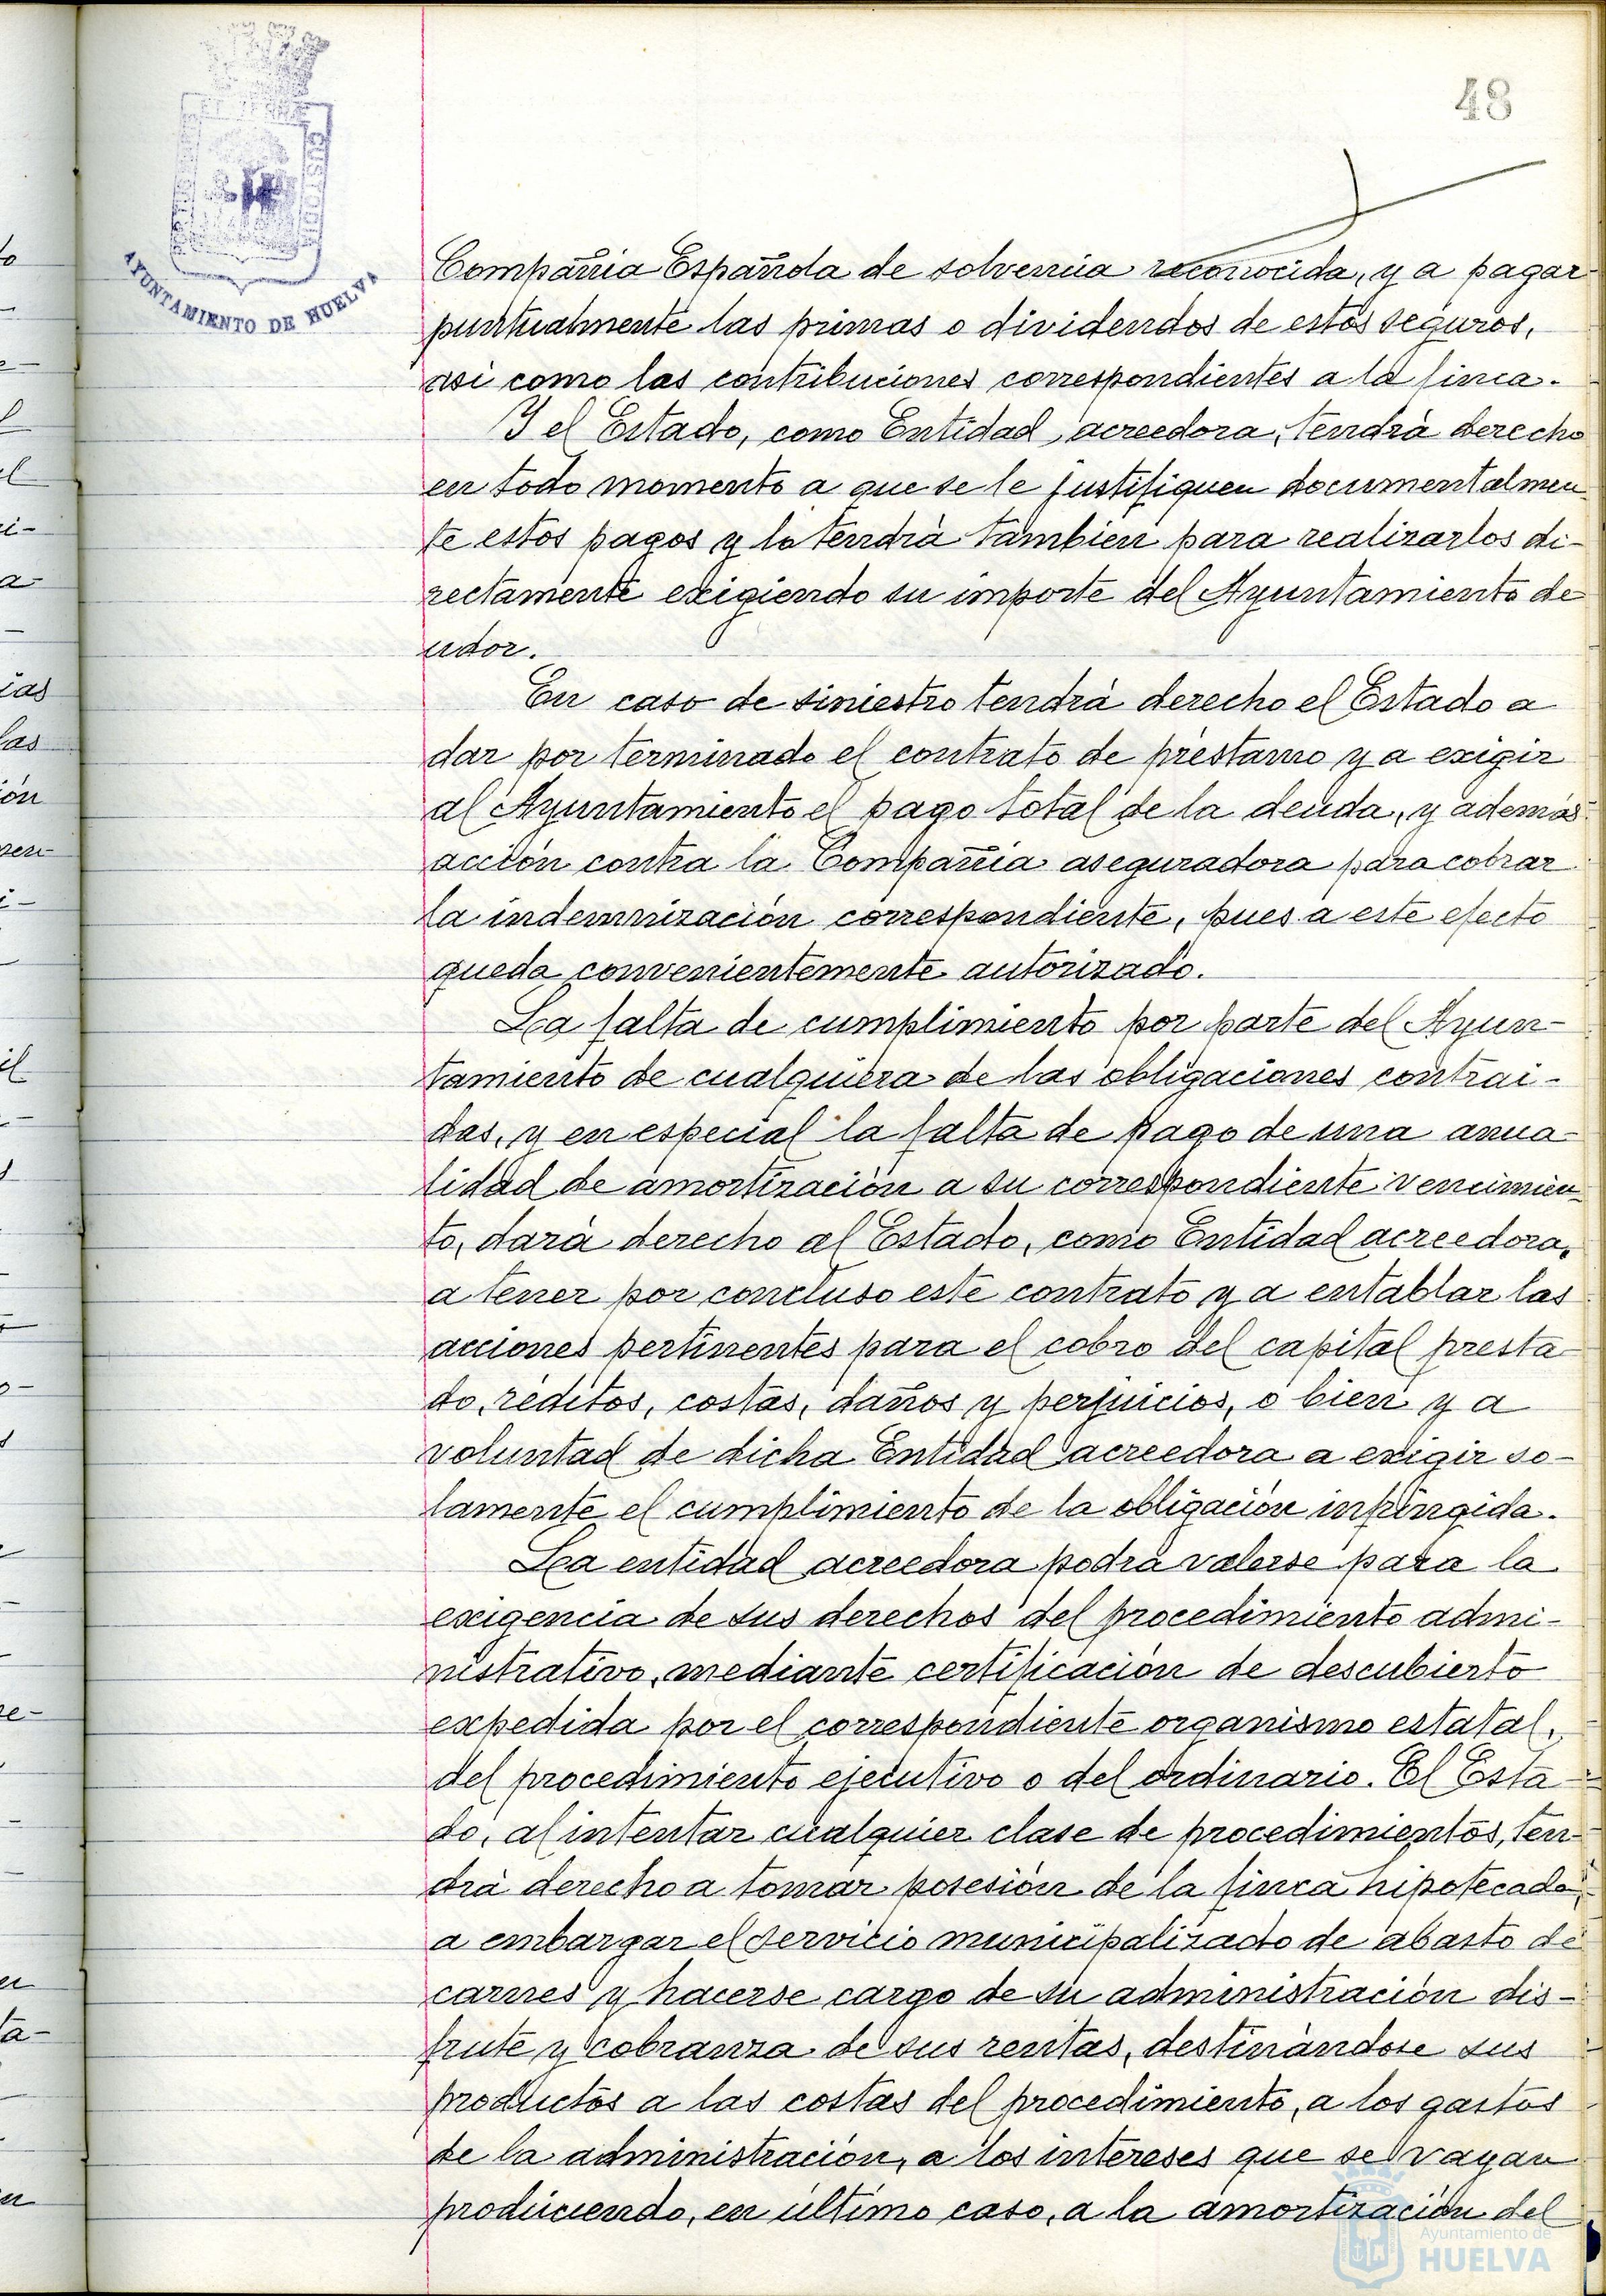 48
AYUNTAMIENTO DE HUELVA
Compañia Española de solvencia reconocida, y a pagar
puntualmente las primas o dividendos de estos seguros,
asi como las contribuciones correspondientes a la finca.
Y el Estado, como Entidad acreedora, tendrà derecho
en todo momento a que se le justifiquen documentalmen-
te estos pagos y lo tendrà tambien para realizarlos di-
rectamente exigiendo su importe del Ayuntamiento de
udor.
En caso de siniestro tendrà derecho el Estado a
dar por terminado el contrato de prestamo y a exigir
al Ayuntamiento el pago total de la deuda, y además
acción contra la Compañia aseguradora para cobrar
la indemnización correspondiente, pues a este efecto
queda convenientemente autorizado.
La falta de cumplimiento por parte del Ayun-
tamiento de cualquiera de las obligaciones contrai-
das, y en especial la falta de pago de una anua-
lidad de amortización a su correspondiente vencimien-
to, darà derecho al Estado, como Entidad acreedora,
a tener por concluso este contrato y a entablar las
acciones pertinentes para el cobro del capital presta-
do, réditos, costas, daños y perjuicios, o bien y a
voluntad de dicha Entidad acreedora a exigir so-
lamente el cumplimiento de la obligación infringida.
La entidad acreedora podrà valerse para la
exigencia de sus derechos del procedimiento admi-
nistrativo, mediante certificación de descubierto
expedida por el correspondiente organismo estatal,
del procedimiento ejecutivo o del ordinario. El Esta-
do, al intentar cualquier clase de procedimientos, ten-
drà derecho a tomar posesión de la finca hipotecada,
a embargar el servicio municipalizado de abasto de
carnes y hacerse cargo de su administración dis-
frute y cobranza de sus rentas, destinàndose sus
productos a las costas del procedimiento, a los gastos
de la administración, a los intereses que se vayan
produciendo, en último caso, a la amortización del
Ayuntamiento de
HUELVA